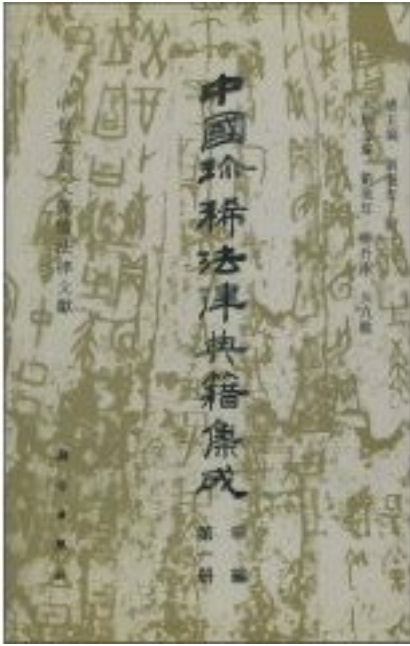 中國珍稀法律典籍集成
甲編
第一册
甲骨文金文簡牘法律文獻
科學出版社